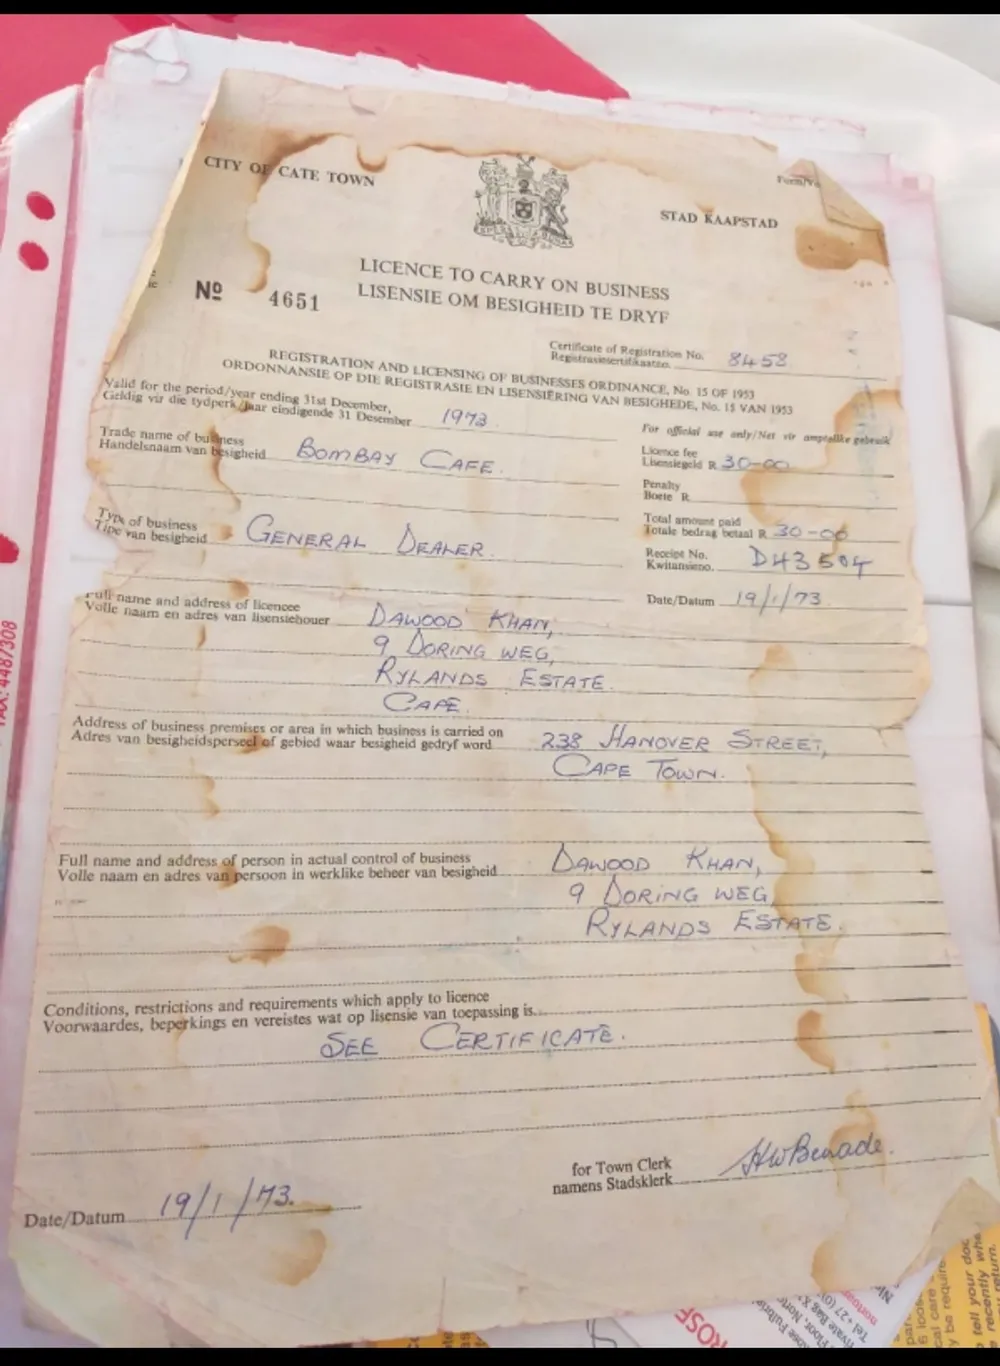 CITY OF CATE TOWN
STAD KAAPSTAD
LICENCE TO CARRY ON BUSINESS
LISENSIE OM BESIGHEID TE DRYF
Nº 4651
Certificate of Registration No. 8458
Registrasiesertifikaatno.
REGISTRATION AND LICENSING OF BUSINESSES ORDINANCE, No. 15 OF 1953
ORDONNANSIE OP DIE REGISTRASIE EN LISENSIËRING VAN BESIGHEDE, No. 15 VAN 1953
Valid for the period/year ending 31st December,
Geldig vir die tydperk/jaar eindigende 31 Desember 1973
For official use only/Net vir amptelike gebruik
Trade name of business
Handelsnaam van besigheid BOMBAY CAFE.
Licence fee
Lisensiegeld R 30-00
Penalty
Boete R
Type of business
Tipe van besigheid GENERAL DEALER.
Total amount paid
Totale bedrag betaal R 30-00
Receipt No.
Kwitansieno. D43504
Date/Datum 19/1/73
Full name and address of licencee
Volle naam en adres van lisensiehouer DAWOOD KHAN,
9 DORING WEG,
RYLANDS ESTATE.
CAPE.
Address of business premises or area in which business is carried on
Adres van besigheidsperseel of gebied waar besigheid gedryf word 238 HANOVER STREET,
CAPE TOWN.
Full name and address of person in actual control of business
Volle naam en adres van persoon in werklike beheer van besigheid DAWOOD KHAN,
9 DORING WEG,
RYLANDS ESTATE.
Conditions, restrictions and requirements which apply to licence
Voorwaardes, beperkings en vereistes wat op lisensie van toepassing is
SEE CERTIFICATE.
for Town Clerk
namens Stadsklerk HWBenade.
Date/Datum 19/1/73.
4487308
ROSE
tell your doc
recently whe
return.